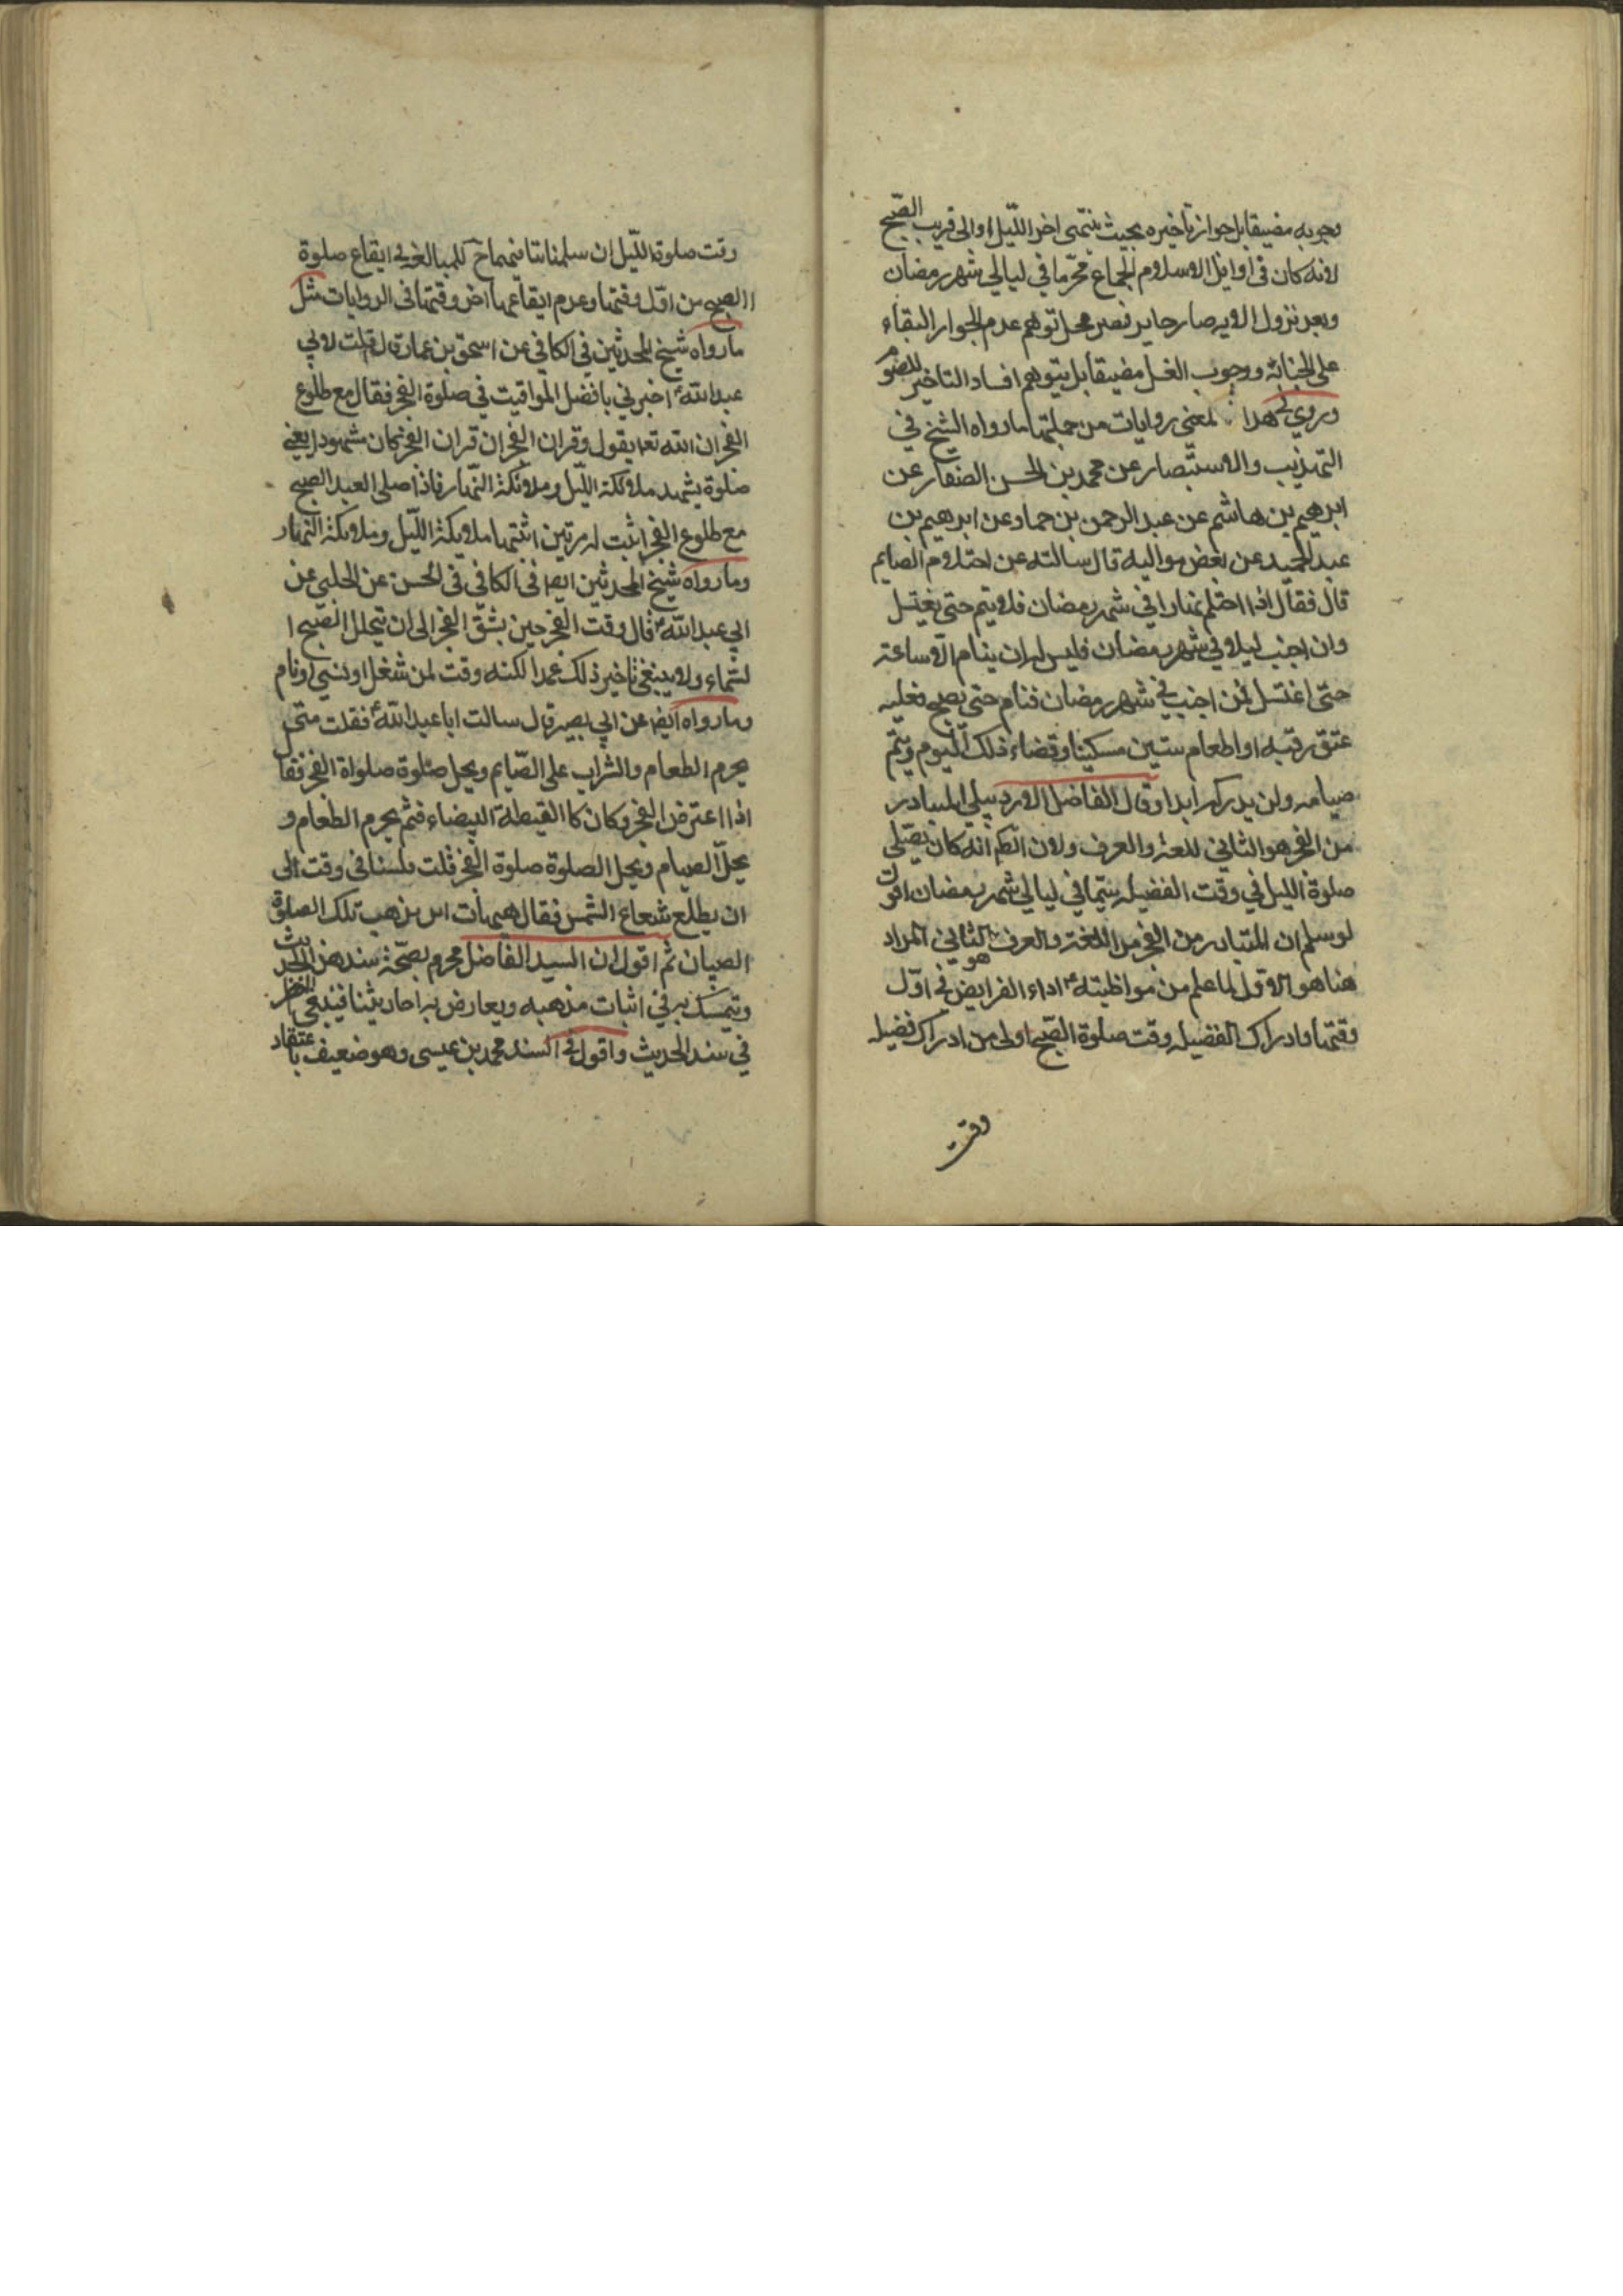 وجوبه مضيقا بل جواز تاخيره بحيث ينتهى اخر الليل او الى قريب الصبح
لانه كان فى اوايل الاسلام الجماع محرما في ليالي شهر رمضان
وبعد نزول الايه صار جايز فصر محل توهم عدم الجواز البقاء
على الجنابة ووجوب الغسل مضيقا بل يتوهم افساد التاخير للصوم
وروي هذا المعنى روايات من جملتها ما رواه الشيخ في
التهذيب والاستبصار عن محمد بن الحسن الصفار عن
ابرهيم بن هاشم عن عبد الرحمن بن حماد عن ابرهيم بن
عبد الحميد عن بعض مواليه قال سالته عن احتلام الصايم
قال فقال اذا احتلم نهارا في شهر رمضان فلا يتم حتى يغتسل
وان اجنب ليلا في شهر رمضان فليس له ان ينام الا ساعة
حتى اغتسل فمن اجنب في شهر رمضان فنام حتى يصبح فعليه
عتق رقبه او اطعام ستين مسكينا وقضاء ذلك اليوم ويتم
صيامه ولن يدركه ابدا وقال الفاضل الاردبيلي المتبادر
من الفجر هو الثاني للغة والعرف ولان انه كان يصلي
صلوة الليل في وقت الفضيله سيما في ليالي شهر رمضان اقول
لو سلم ان المتبادر من الفجر من اللغة والعرف هو الثاني المراد
هنا هو الاول لما علم من مواظبته ع اداء الفرايض في اول
وقتها وادراك الفضيله وقت صلوة الصبح اولى من ادراك فضيله
وقت
وقت صلوة الليل ان سلمنا للمبالغة في ايقاع صلوة
الصبح من اول وقتها وعدم ايقاعها اخر وقتها فى الروايات مثل
ما رواه شيخ المحدثين في الكافي عن اسحق بن عمار قال قلت لابي
عبد الله ع اخبرني بافضل المواقيت في صلوة الفجر فقال مع طلوع
الفجر ان الله تعا يقول وقران الفجر ان قران الفجر كان مشهودا يعني
صلوة يشهد ملائكة الليل وملائكة النهار فاذا صلى العبد الصبح
مع طلوع الفجر اثبت له مرتين اثبتها ملائكة الليل وملائكة النهار
وما رواه شيخ المحدثين ايضا فى الكافي فى الحسن عن الحلبي عن
ابي عبد الله ع قال وقت الفجر حين يشق الفجر الى ان يتجلل الصبح ا
لسماء ولا ينبغي تاخير ذلك عمدا لكنه وقت لمن شغل او نسي او نام
وما رواه ايضا عن ابي بصير قال سالت ابا عبد الله ع فقلت متى
يحرم الطعام والشراب على الصايم ويحل صلوة صلواة الفجر فقال
اذا اعترض الفجر وكان كا القبطة البيضاء فثم يحرم الطعام و
يحل الصيام ويحل الصلوة صلوة الفجر قلت فلسنا فى وقت الى
ان يطلع شعاع الشمس فقال هيهات اين يذهب تلك الصلوة
الصبيان ثم اقول ان السيد الفاضل مجروم بصحة سند هذا الحديث
وتمسك به في اثبات مذهبه ويعارض به احاديثنا فينبغي النظر
في سند الحديث واقول في السند محمد بن عيسى وهو ضعيف باعتقاد